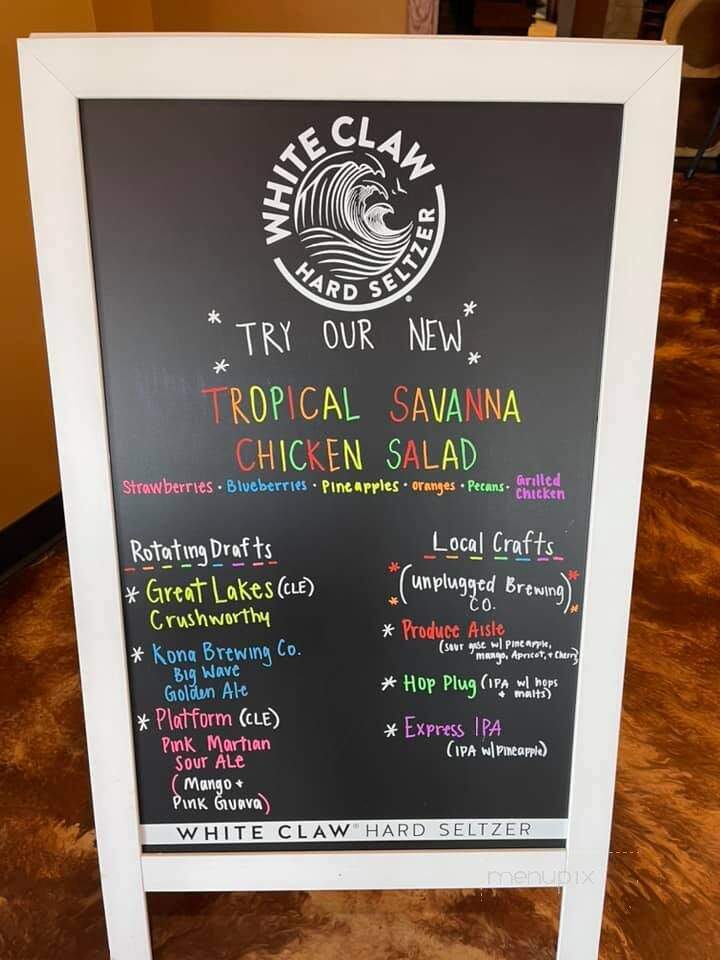 WHITE CLAW
HARD SELTZER
* TRY OUR NEW *
* *
TROPICAL SAVANNA
CHICKEN SALAD
Strawberries · Blueberries · Pineapples · oranges · Pecans · Grilled Chicken
Rotating Drafts
* Great Lakes (CLE)
Crushworthy
* Kona Brewing Co.
Big Wave
Golden Ale
* Platform (CLE)
Pink Martian
Sour Ale
(Mango +
Pink Guava)
Local Crafts
* (unplugged Brewing) *
* CO. *
* Produce Aisle
(sour gose w/ pineapple,
mango, Apricot, + Cherry)
* Hop Plug (IPA w/ hops
+ malts)
* Express IPA
(IPA w/ Pineapple)
WHITE CLAW® HARD SELTZER
menupix